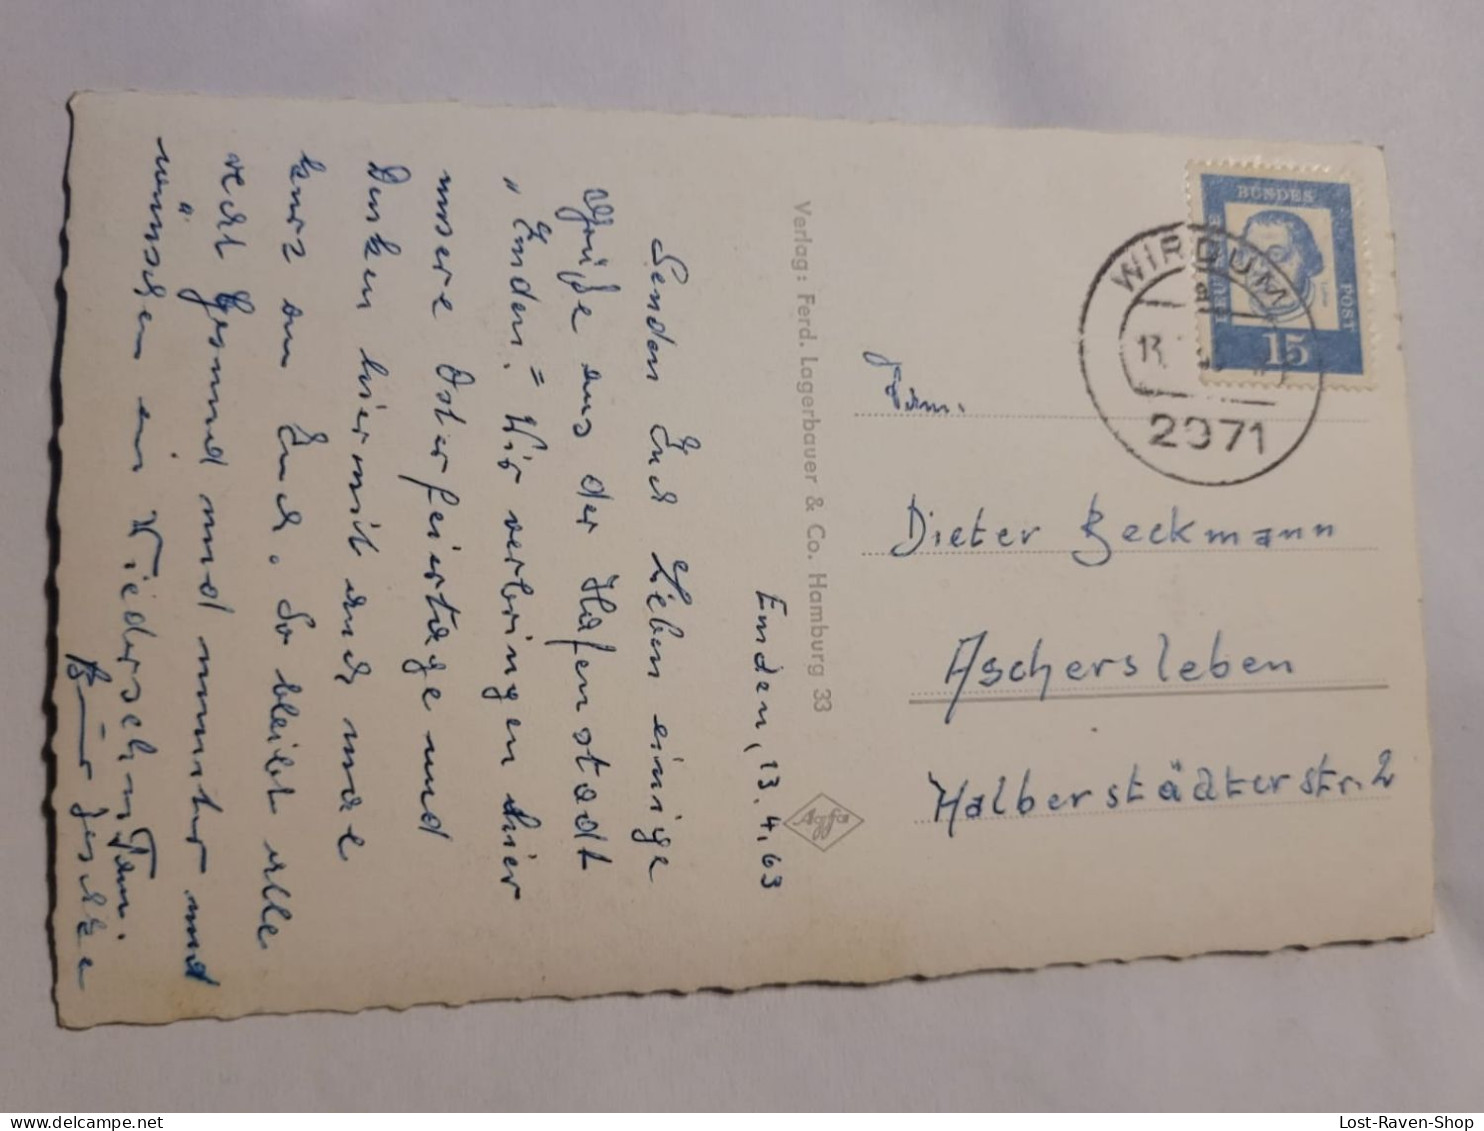 Emden, 13.4.63
Senden Euch Lieben einige
Grüße aus der Hafenstadt
"Emden." Wir verbringen hier
unsere Osterfeiertage und
Denken hiermit auch mal
kurz an Euch. So bleibt alle
recht Gesund und munter und
wünschen ein Wiedersehn Fam.
Verlag: Ferd. Lagerbauer & Co. Hamburg 33
Agfa
BUNDES
POST
DEUTSCHE
15
WIRDUM
13.
2971
Fam.
Dieter Beckmann
Aschersleben
Halberstädterstr. 2
Lost-Raven-Shop